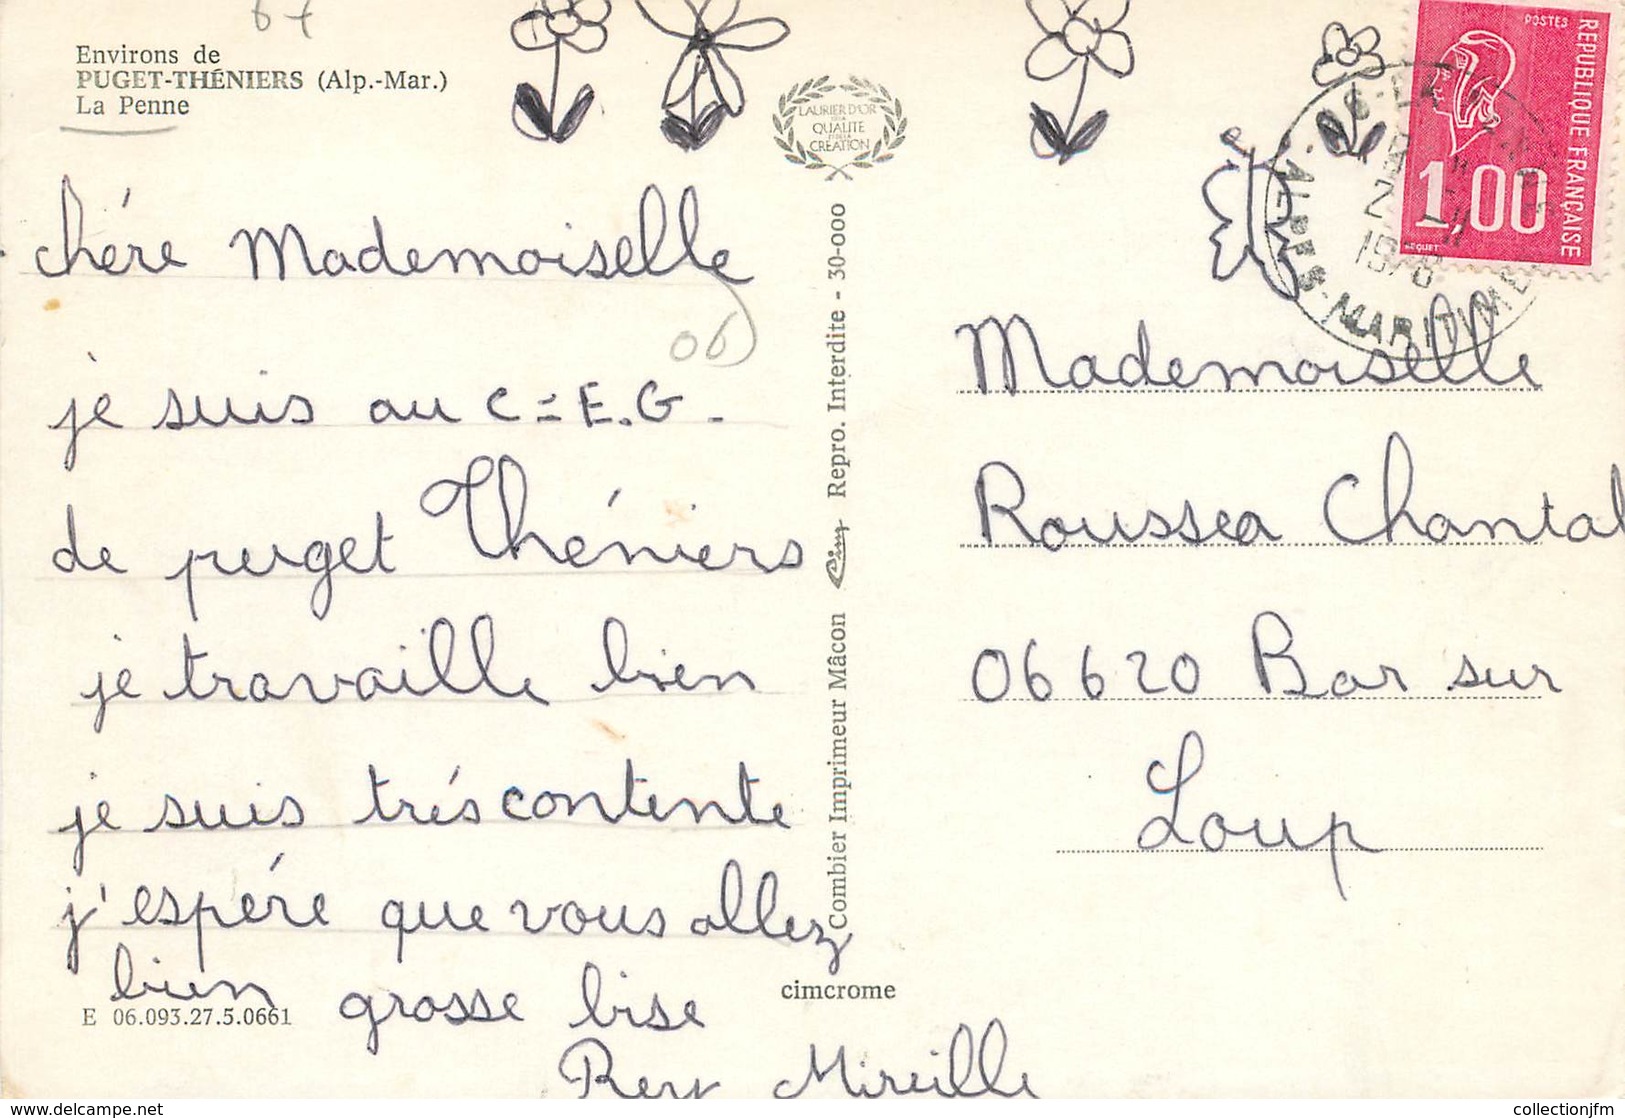 67
Environs de
PUGET-THÉNIERS (Alp.-Mar.)
La Penne
LAURIER D'OR
QUALITÉ
CRÉATION
POSTES
REPUBLIQUE FRANÇAISE
1,00
BEQUET
ALPES-MARITIMES
chére Mademoiselle
06
je suis au C=E.G-
de puget Théniers
je travaille bien
je suis trés contente
j'espére que vous allez
bien
grosse bise
Rey Mireille
E 06.093.27.5.0661
Combier Imprimeur Mâcon Cim Repro. Interdite - 30-000
cimcrome
Mademoiselle
Roussea Chantal
06620 Bar sur
Loup
collectionjfm